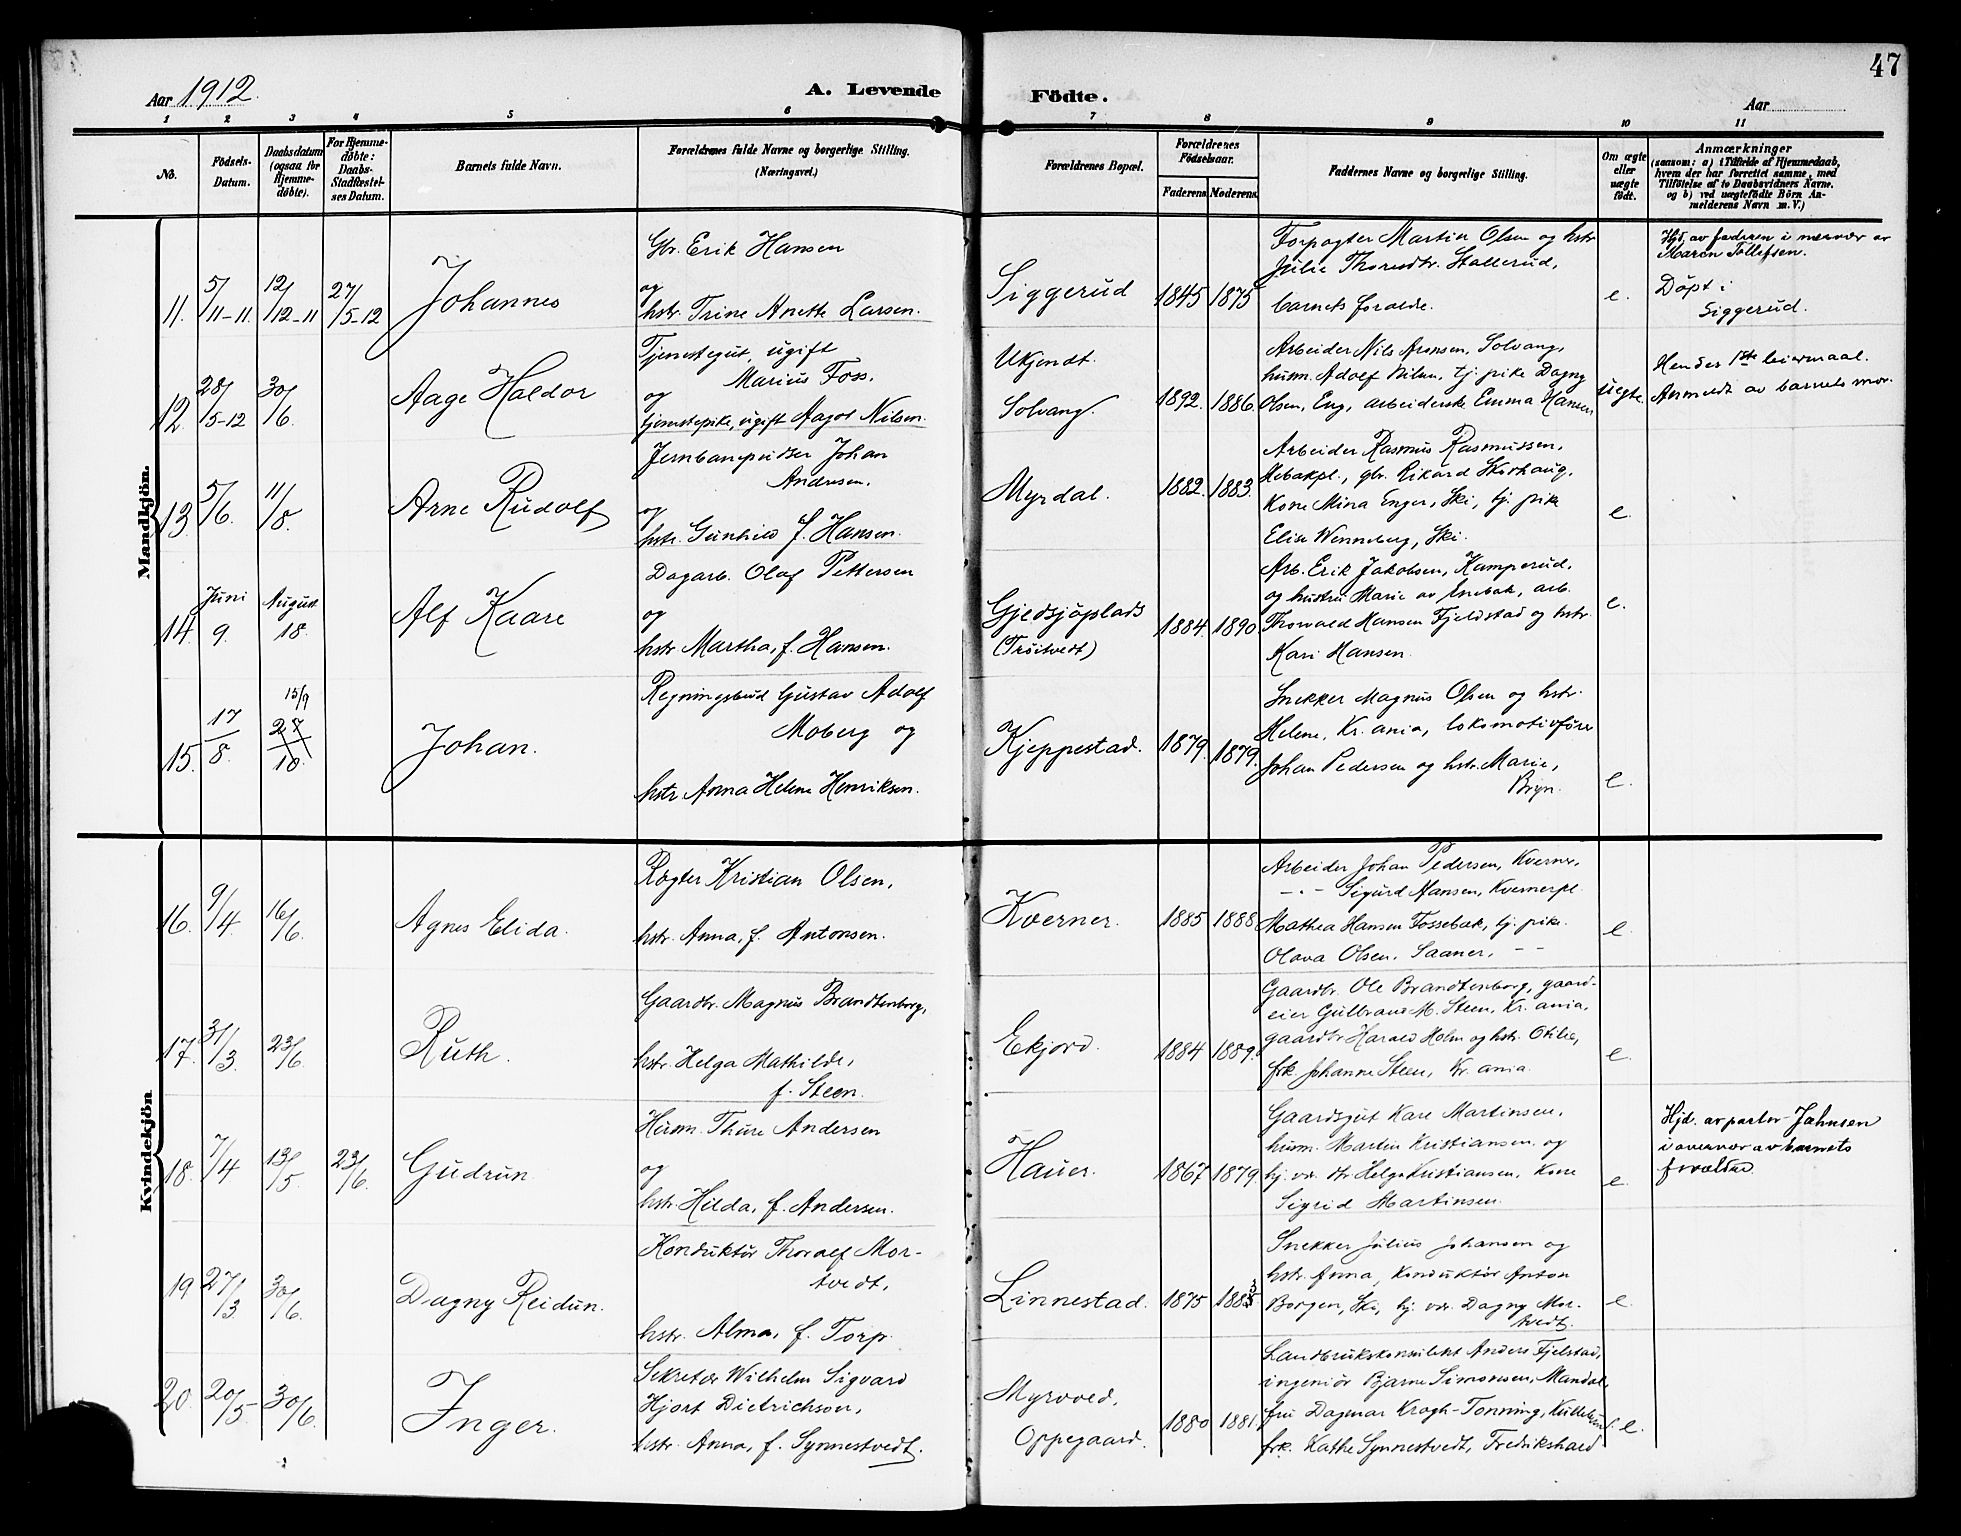 47
Aar 1912.
A. Levende Födte.
Aar
1 2 3 4 5 6 7 8 9 10 11
No.
Födsels-Datum.
Daabsdatum (ogsaa for Hjemme-döbte).
For Hjemme-döbte: Daabs-Stadfæstel-ses Datum.
Barnets fulde Navn.
Forældrenes fulde Navne og borgerlige Stilling. (Næringsvei.)
Forældrenes Bopæl.
Forældrenes Födselsaar.
Faderens Moderens
Faddernes Navne og borgerlige Stilling.
Om ægte eller uægte födt.
Anmærkninger
(saasom: a) i Tilfælde af Hjemmedaab, hvem der har forrettet samme, med Tilföielse af to Daabsvidners Navne, og b) ved uægtefödte Börn An-melderens Navn m. V.)
Mandkjön.
11. 5/11-11. 12/12-11 27/5-12 Johannes
Gbr. Erik Hansen
og
hstr. Trine Anette Larsen.
Siggerud 1845 1875
Forpagter Martin Olsen og hstr
Julie Thoresdtr. Stallerud,
barnets foraldre.
e.
Hjd. av faderen i nærvær av
Maren Tollefsen.
Döpt i
Siggerud.
12. 28/5-12 30/6. Aage Haldor
Tjenestegut, ugift
Marius Foss.
og
tjenestepike, ugift Aagot Nilsen.
Ukjendt.
Solvang. 1892. 1886.
Arbeider Nils Arensen, Solvang,
husm. Adolf Nilsen, tj. pike Dagny
Olsen, Eng, arbeiderske Emma Hansen
uegte.
Hendes 1ste leiermaal.
Anmeldt av barnets mor.
13. 5/6. 11/8. Arne Rudolf
Jernbanespidser Johan
Andresen.
og
hstr. Gunhild f. Hansen.
Myrdal. 1882. 1883.
Arbeider Rasmus Rasmussen,
Aebakpl., gbr. Rikard Skorhaug,
Kone Mina Enger, Ski, tj. pike
Elise Wenneberg, Ski.
e.
14. Juni 9. August 18. Alf Kaare
Dagarb. Olaf Pettersen
og
hstr Martha, f. Hansen.
Gjedsjöplads
(Tröitvedt) 1884. 1890
Arb. Erik Jakobsen, Kamperud,
og hustru Marie av Enebak, arb.
Thorvald Hansen Fjeldstad og hstr.
Kari Hansen.
e.
15. 17/8. 15/9 27/10. Johan.
Regningsbud Gustav Adolf
Moberg og
hstr Anna Helene Henriksen.
Kjeppestad. 1879. 1879.
Snekker Magnus Olsen og hstr.
Helene, Kr. ania, lokomotivförer
Johan Pedersen og hstr. Marie,
Bryn.
e.
Kvindekjön
16. 9/4. 16/6. Agnes Elida.
Rögter Kristian Olsen,
hstr. Anna, f. Antonsen.
Kverner. 1885 1888
Arbeider Johan Pedersen, Kverner,
-"- Sigurd Hansen, Kvernerpl.
Mathea Hansen Fossebæk, tj. pike.
Olava Olsen, Saaner, - -
e.
17. 31/3. 23/6. Ruth.
Gaardbr. Magnus Brandtenborg,
hstr. Helga Mathilde,
f. Steen.
Ekjord. 1884 1889.
Gaardbr. Ole Brandtenborg, gaard-
eier Gulbrand M. Steen, Kr. ania,
gaardbr Harald Holm og hstr. Otilie,
frk. Johanne Steen, Kr. ania.
e.
18. 7/4 13/5 23/6. Gudrun.
Husm. Thure Andersen
og
hstr. Hilda, f. Andersen.
Hauer. 1867 1879.
Gaardsgut Kare Martinsen,
husm. Martin Kristiansen og
hj. vær. dtr Helga Kristiansen, Kone
Sigrid Martinsen.
e.
Hjd. av pastor Jahnsen
i overvær av barnets
forældre.
19 27/3. 30/6. Dagny Reidun.
Konduktör Thoralf Mor-
tvedt,
hstr. Alma, f. Torp.
Linnestad. 1875 1883
Snekker Julius Johansen og
hstr. Anna, Konduktör Anton
Borgen, Ski, hj. vær. Dagny Mor-
tvedt.
e.
20. 20/5- 30/6. Inger.
Sekretær Wilhelm Sigvard
Hjort Dietrichson,
hstr. Anna, f. Synnestvedt.
Myrvold,
Oppegaard. 1880 1881.
Landbrukskonsulent Anders Fjelstad,
ingeniör Bjarne Simonsen, Mandal,
fru Dagmar Krogh-Tonning, Kullebund
frk. Kathe Synnestvedt, Fredrikshald
e.